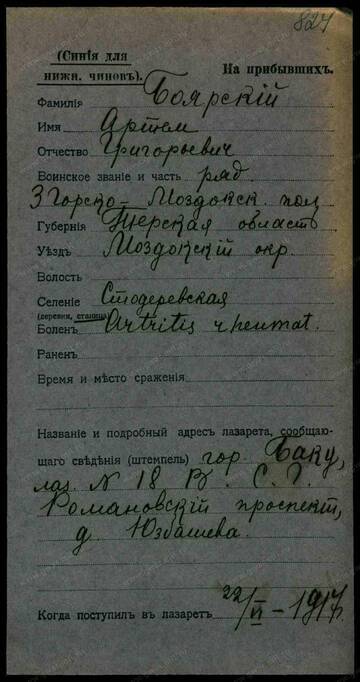 827
(Синія для
нижн. чиновъ).
На прибывшихъ.
Фамилія Боярскій
Имя Артем
Отчество Григорьевич
Воинское званіе и часть ряд.
3 Горско-Моздокск. пол
Губернія Терская область
Уѣздъ Моздокскій окр.
Волость
Селеніе Стодеревская
(деревня, станица)
Боленъ Artritis rheumat.
Раненъ
Время и мѣсто сраженія
Названіе и подробный адресъ лазарета, сообщаю-
щаго свѣдѣнія (штемпель) гор. Баку,
лаз. N 18 В. С. Г.
Романовскій проспект,
д. Юзбашева.
Когда поступилъ въ лазаретъ 22/VI - 1917.